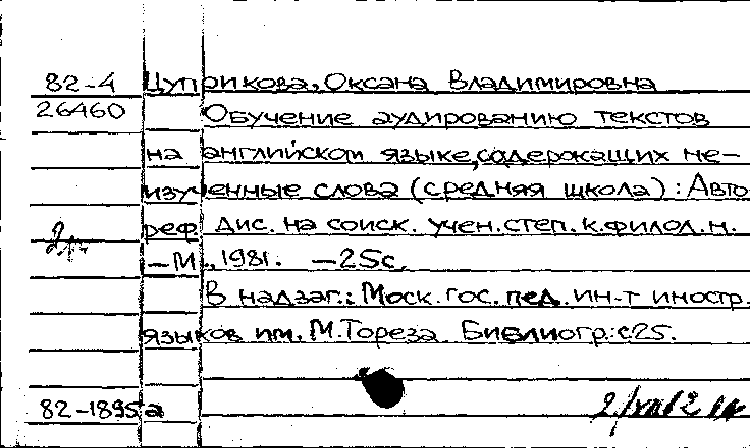 82-4 Цуприкова, Оксана Владимировна
26460 Обучение аудированию текстов
на английском языке, содержащих не-
изученные слова (средняя школа): Авто
реф. дис. на соиск. учен. степ. к. филол. н.
— М., 1981. — 25с.
В надзаг.: Моск. гос. пед. ин-т иностр.
языков им. М. Тореза. Библиогр.: с25.
82-1895а